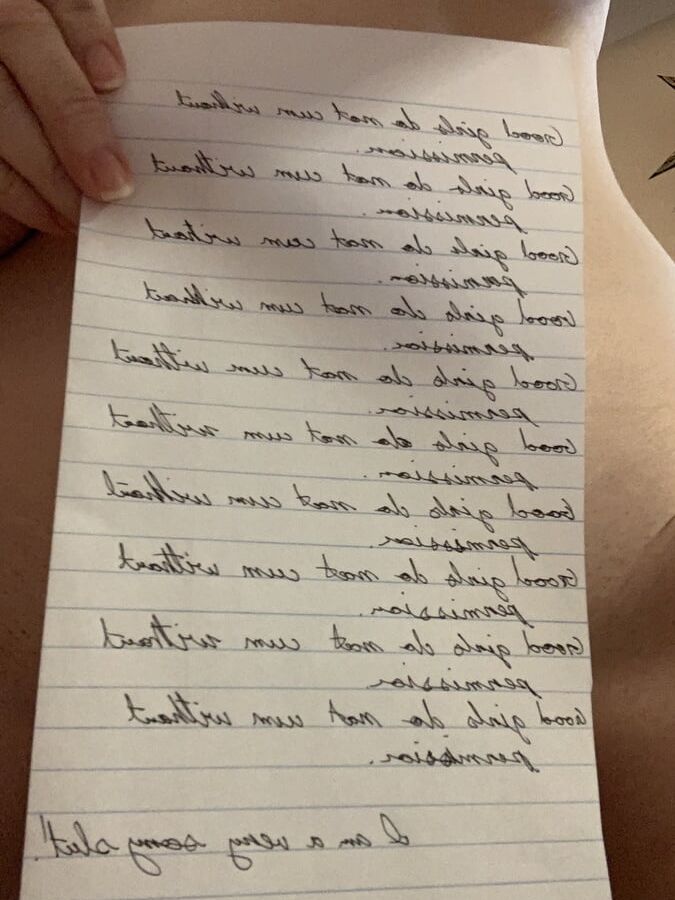 Good girls do not cum without
permission.
Good girls do not cum without
permission.
Good girls do not cum without
permission.
Good girls do not cum without
permission.
Good girls do not cum without
permission.
Good girls do not cum without
permission.
Good girls do not cum without
permission.
Good girls do not cum without
permission.
Good girls do not cum without
permission
Good girls do not cum without
permission.
I am a very sorry slut!